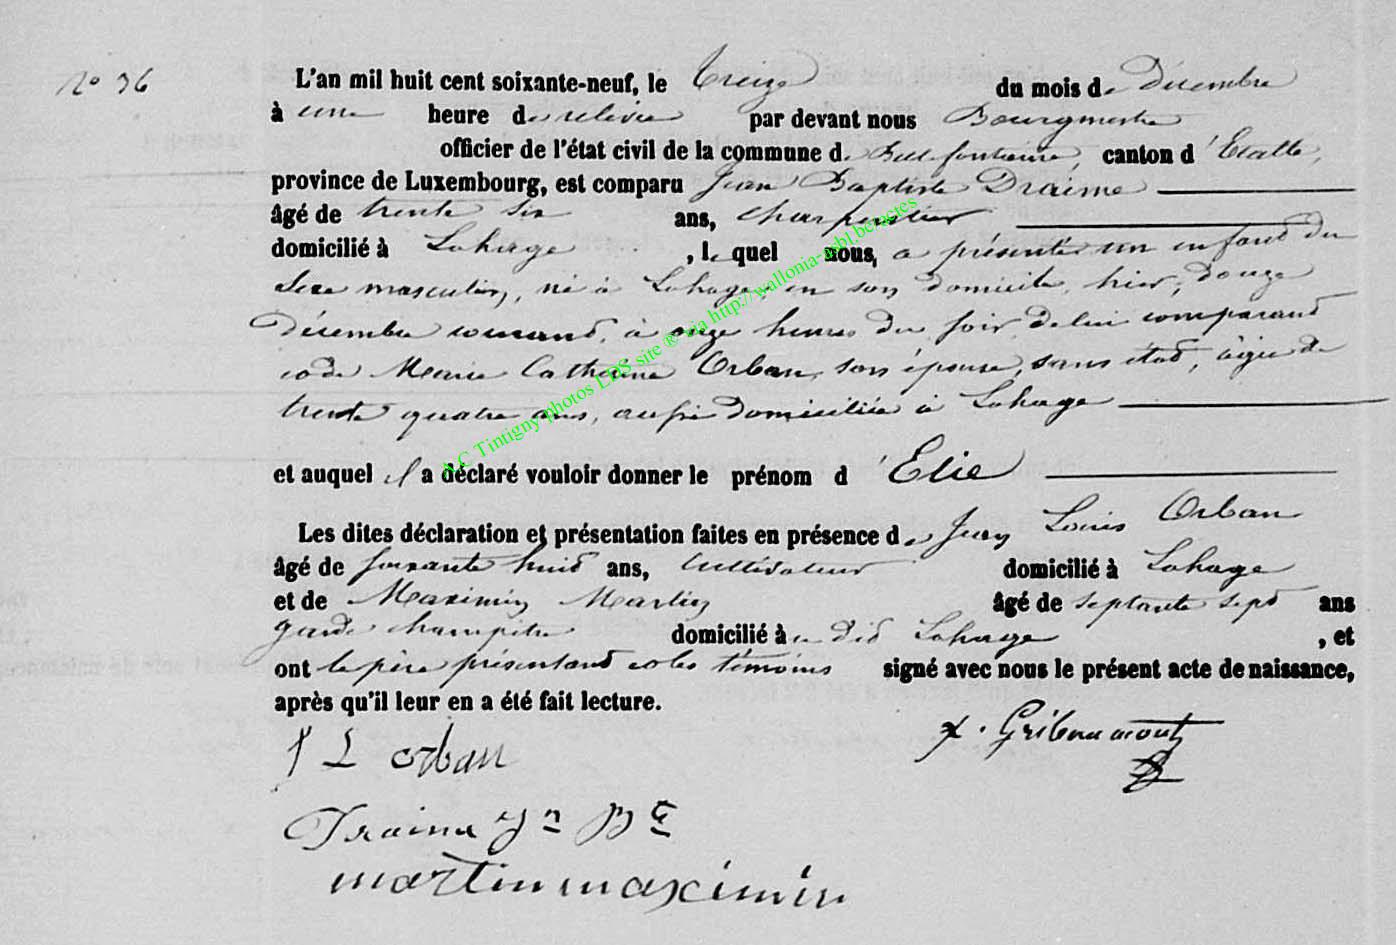 No 36
L'an mil huit cent soixante-neuf, le treize du mois de Décembre
à une heure de relevée par devant nous Bourgmestre
officier de l'état civil de la commune de Bellefontaine, canton d'Etalle,
province de Luxembourg, est comparu Jean Baptiste Draime
âgé de trente six ans, charpentier
domicilié à Lahage, lequel nous, a présenté un enfant du
Sexe masculin, né à Lahage, en son domicile, hier, douze
Décembre courant, à onze heures du soir, de lui comparant
et de Marie Catherine Orban, son épouse, sans état, âgée de
trente quatre ans, aussi domiciliée à Lahage
et auquel il a déclaré vouloir donner le prénom d'Elie
Les dites déclaration et présentation faites en présence de Jean Louis Orban
âgé de soixante huit ans, cultivateur domicilié à Lahage
et de Maximin Martin âgé de septante sept ans
garde champêtre domicilié à dit Lahage, et
ont le père présentant et les témoins signé avec nous le présent acte de naissance,
après qu'il leur en a été fait lecture.
J L orban
x. Gribaumont
Draime Jn Bte
martin maximin
A.C Tintigny photos LDS site ® via http://wallonia-asbl.be/actes